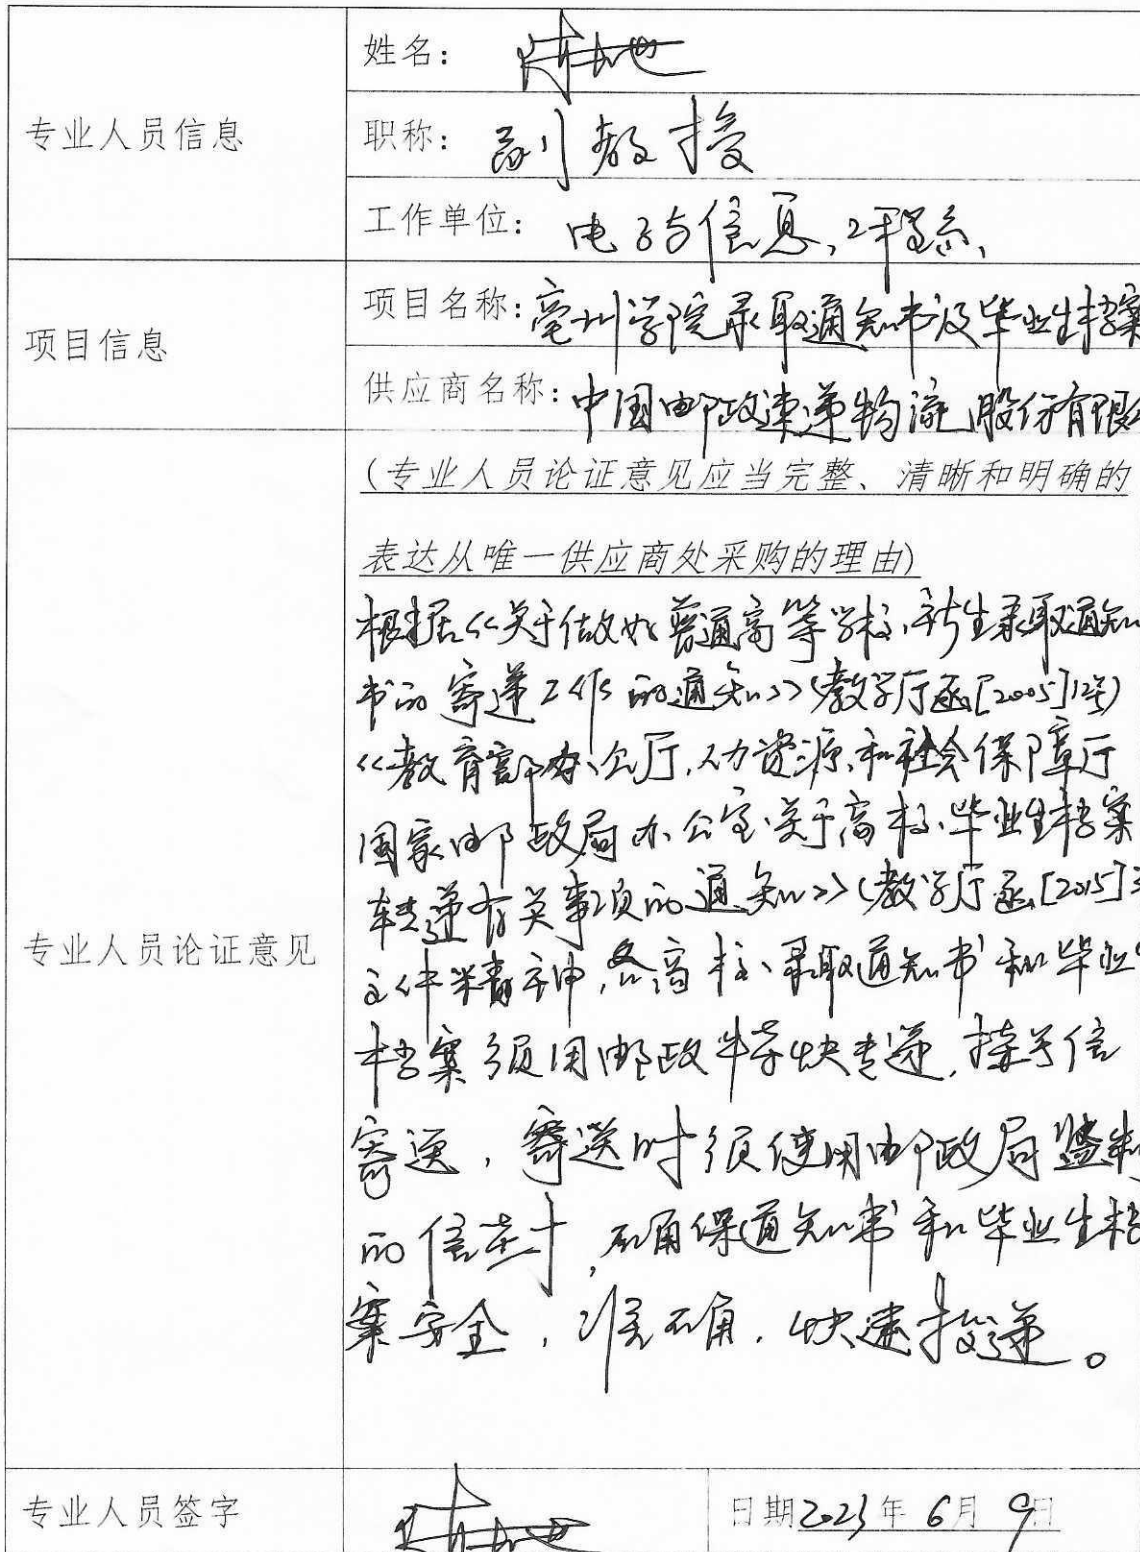 姓名：
专业人员信息
职称：副教授
工作单位：电子与信息工程系
项目信息
项目名称：亳州学院录取通知书及毕业生档案
供应商名称：中国邮政速递物流股份有限公
（专业人员论证意见应当完整、清晰和明确的
表达从唯一供应商处采购的理由）
专业人员论证意见
根据《关于做好普通高等学校新生录取通知
书的寄递工作的通知》（教学厅函[2005]12号）
《教育部办公厅、人力资源和社会保障厅
国家邮政局办公室关于高校毕业生档案
转递有关事项的通知》（教学厅函[2015]3
文件精神，各高校录取通知书和毕业生
档案须用邮政特快专递，挂号信
寄送，寄送时须使用邮政局监制
的信封，确保通知书和毕业生档
案安全，准确，快速投递。
专业人员签字
日期2023年6月9日